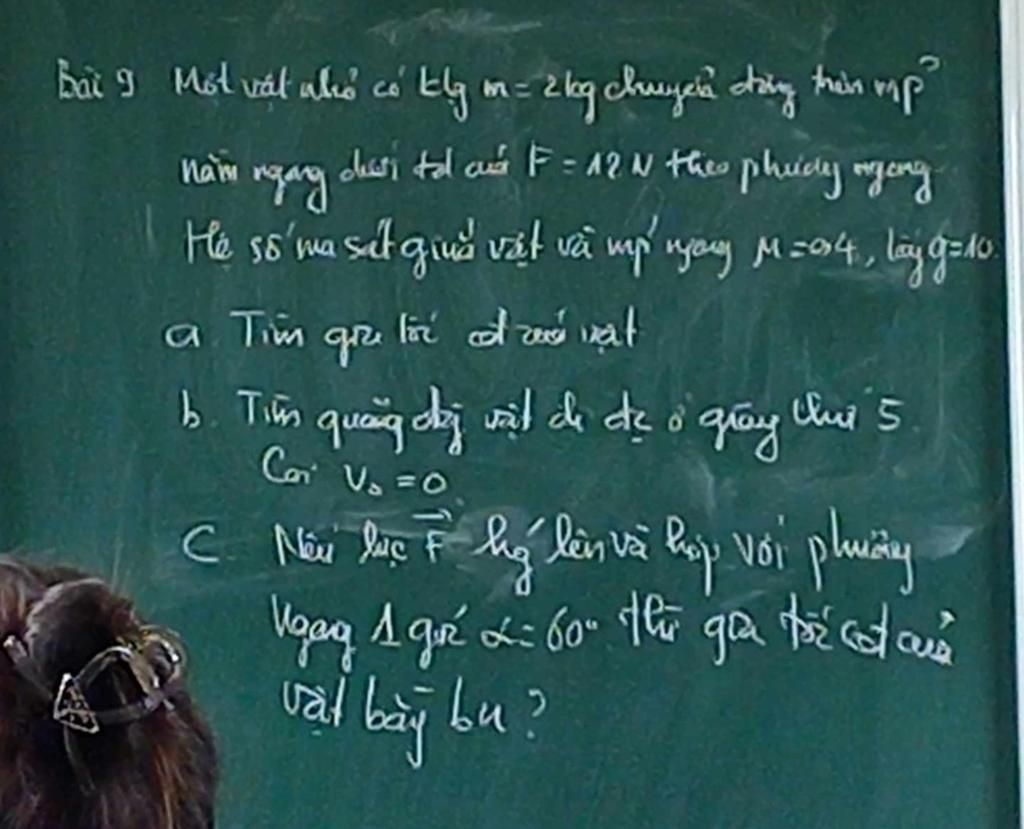 Bài 9 Một vật nhỏ có klg m = 2kg chuyển động trên mp
nằm ngang dưới td của F = 12 N theo phương ngang
Hệ số ma sát giữa vật và mp ngang μ = 0,4, lấy g=10.
a Tìm gia tốc cđ của vật
b. Tìm quãng đg vật đi đc ở giây thứ 5.
Coi V₀ = 0
C Nếu lực F⃗ hg lên và hợp với phương
ngang 1 góc α = 60° thì gia tốc cđ của
vật bằng bn ?